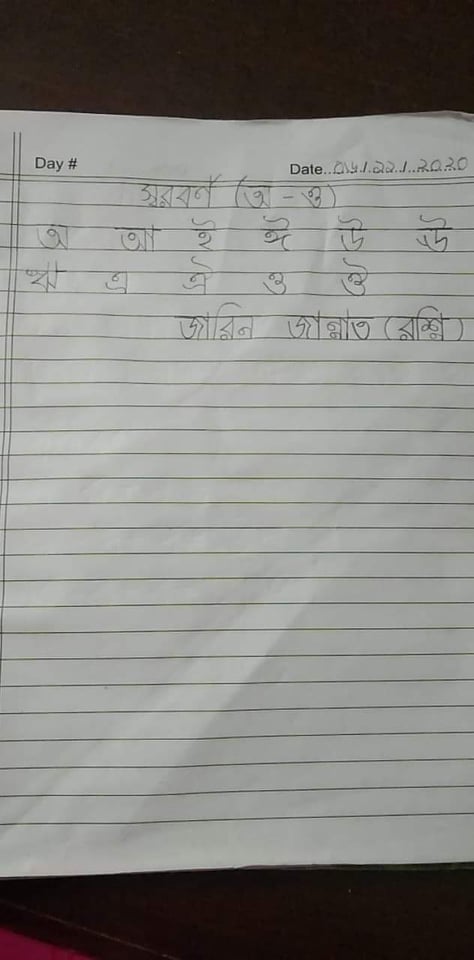 Day #
Date..০৬.১.২২.১..২০২০
স্বরবর্ণ (অ - ঔ)
অ আ ই ঈ উ ঊ
ঋ এ ঐ ও ঔ
জারিন জান্নাত (রশ্মি)